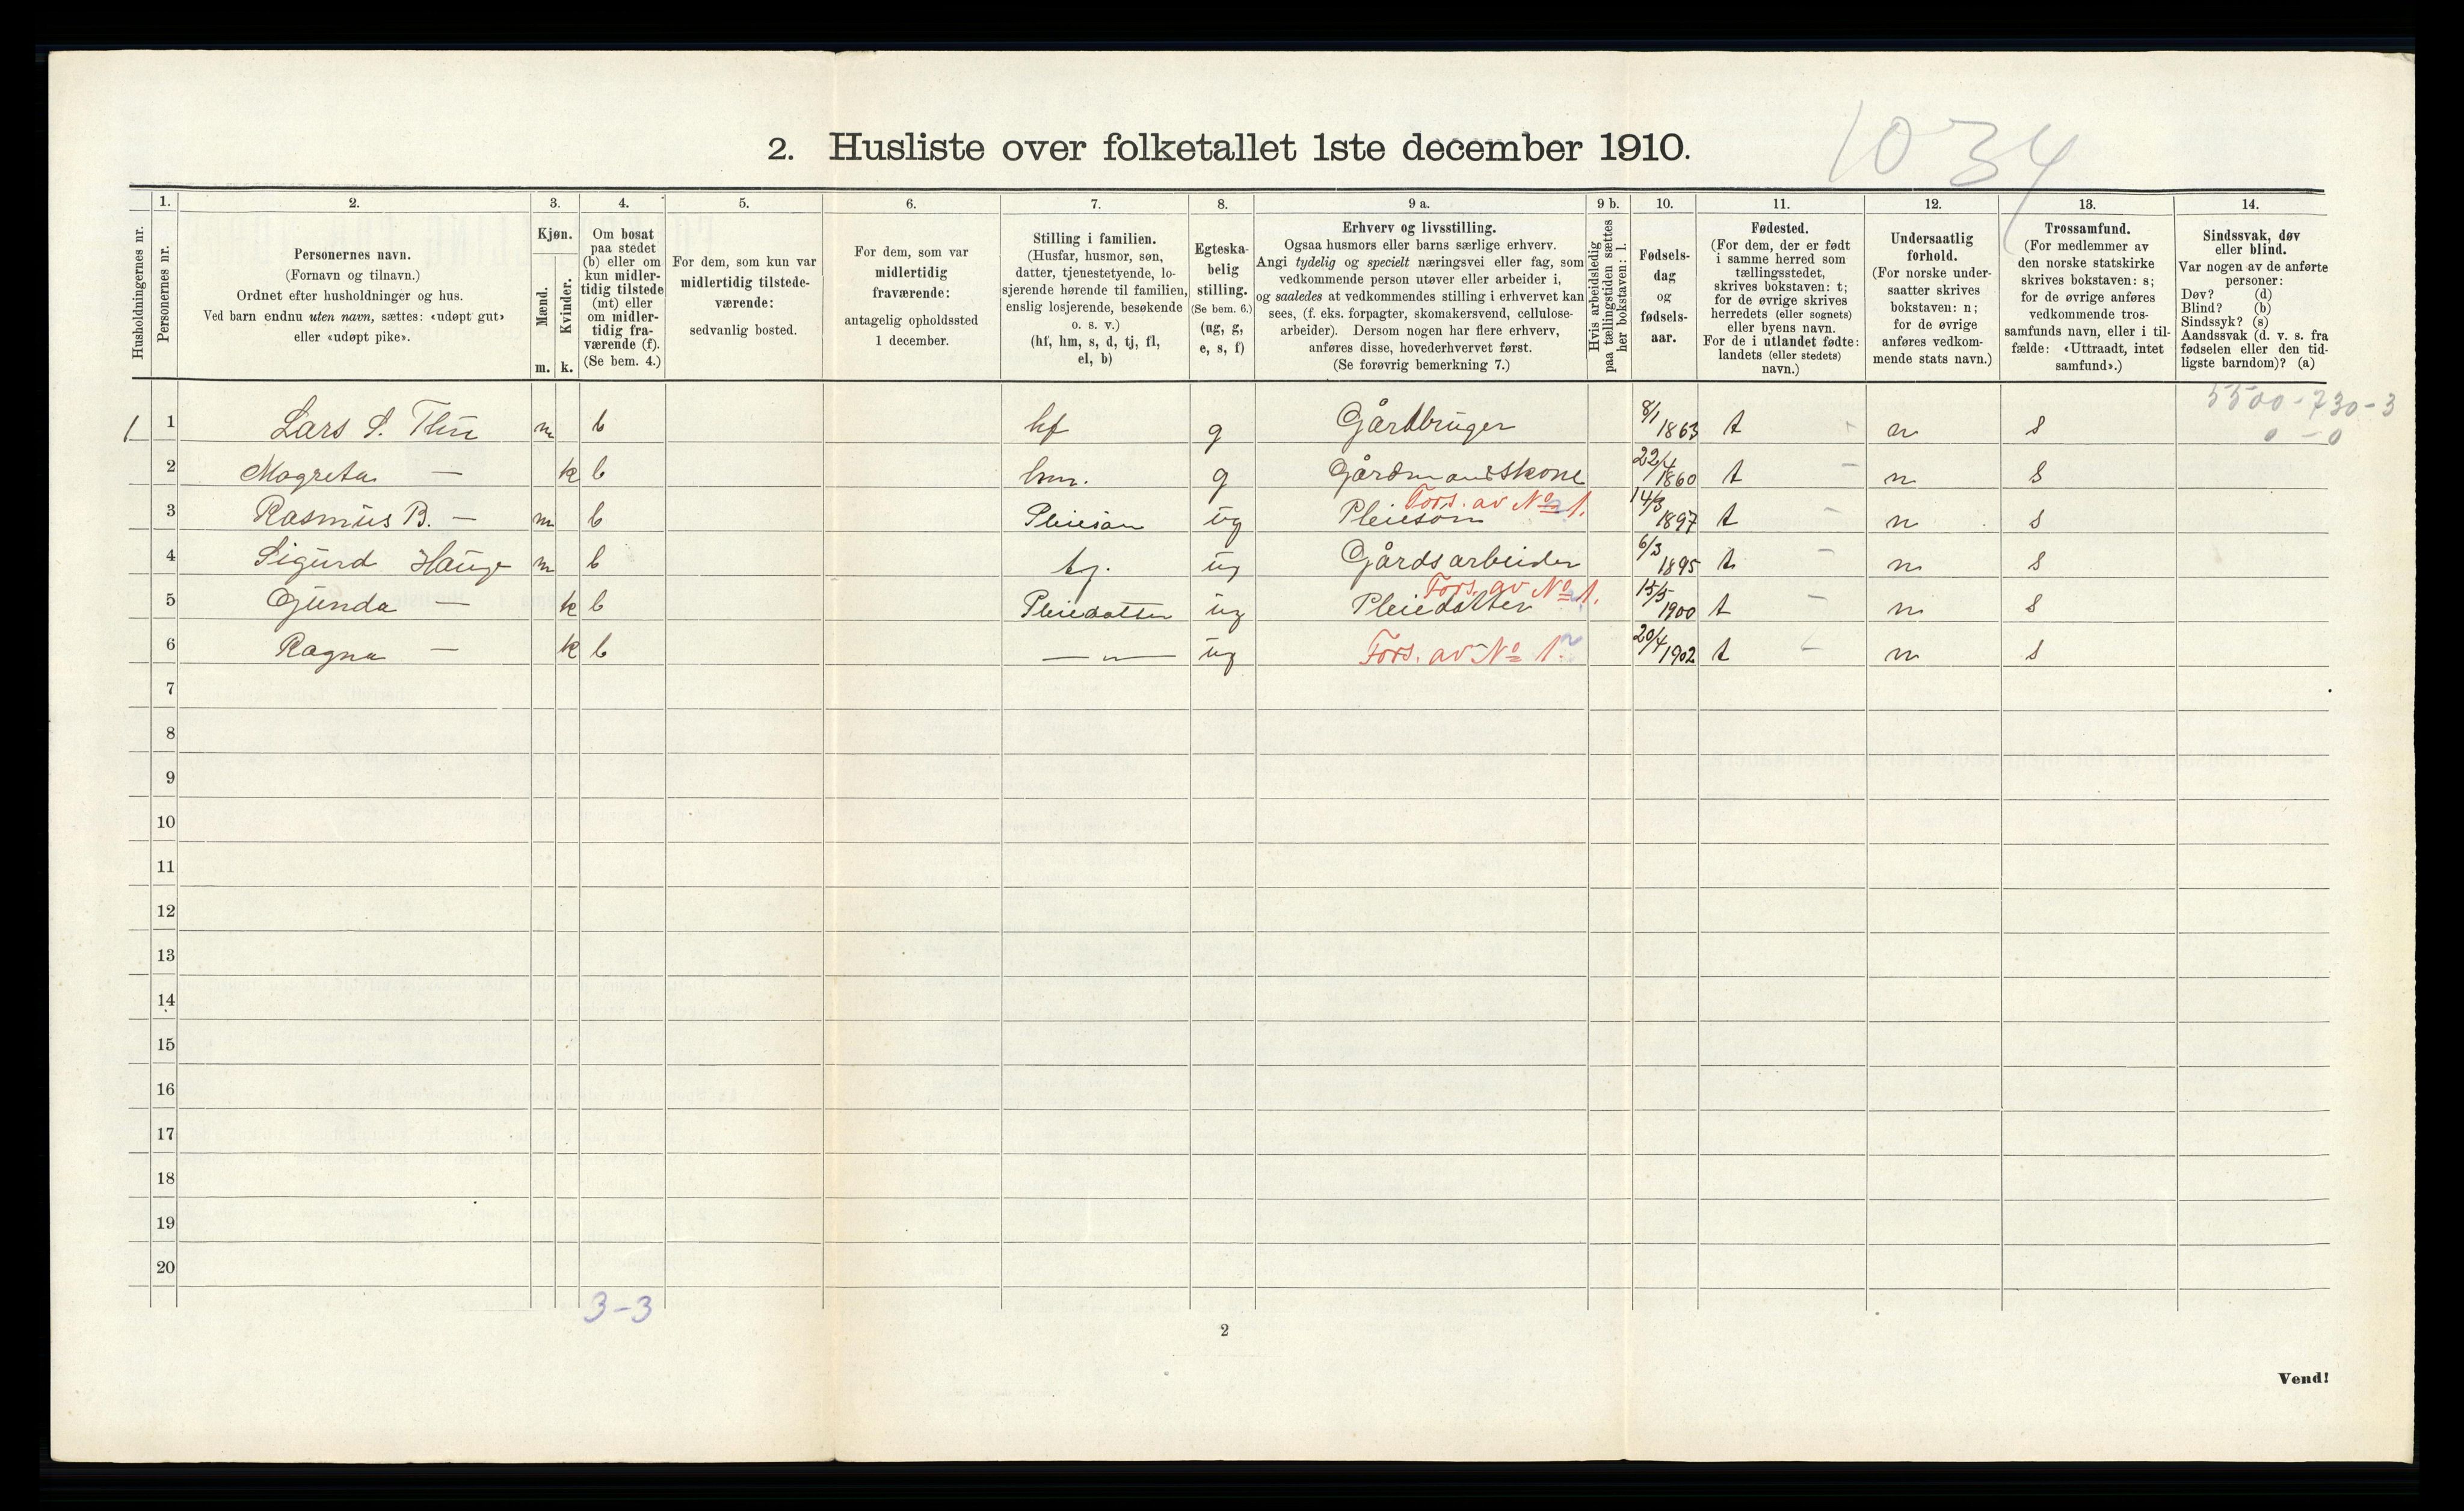 2. Husliste over folketallet 1ste december 1910.
1034
Husholdningernes nr.
1.
Personernes nr.
2.
Personernes navn.
(Fornavn og tilnavn.)
Ordnet efter husholdninger og hus.
Ved barn endnu uten navn, sættes: «udøpt gut»
eller «udøpt pike».
3.
Kjøn.
Mænd.
Kvinder.
m. k.
4.
Om bosat
paa stedet
(b) eller om
kun midler-
tidig tilstede
(mt) eller
om midler-
tidig fra-
værende (f).
(Se bem. 4.)
5.
For dem, som kun var
midlertidig tilstede-
værende:
sedvanlig bosted.
6.
For dem, som var
midlertidig
fraværende:
antagelig opholdssted
1 december.
7.
Stilling i familien.
(Husfar, husmor, søn,
datter, tjenestetyende, lo-
sjerende hørende til familien,
enslig losjerende, besøkende
o. s. v.)
(hf, hm, s, d, tj, fl,
el, b)
8.
Egteska-
belig
stilling.
(Se bem. 6.)
(ug, g,
e, s, f)
9 a.
Erhverv og livsstilling.
Ogsaa husmors eller barns særlige erhverv.
Angi tydelig og specielt næringsvei eller fag, som
vedkommende person utøver eller arbeider i,
og saaledes at vedkommendes stilling i erhvervet kan
sees, (f. eks. forpagter, skomakersvend, cellulose-
arbeider). Dersom nogen har flere erhverv,
anføres disse, hovederhvervet først.
(Se forøvrig bemerkning 7.)
9 b.
Hvis arbeidsledig
paa tællingstiden sættes
her bokstaven: l.
10.
Fødsels-
dag
og
fødsels-
aar.
11.
Fødested.
(For dem, der er født
i samme herred som
tællingsstedet,
skrives bokstaven: t;
for de øvrige skrives
herredets (eller sognets)
eller byens navn.
For de i utlandet fødte:
landets (eller stedets)
navn.)
12.
Undersaatlig
forhold.
(For norske under-
saatter skrives
bokstaven: n;
for de øvrige
anføres vedkom-
mende stats navn.)
13.
Trossamfund.
(For medlemmer av
den norske statskirke
skrives bokstaven: s;
for de øvrige anføres
vedkommende tros-
samfunds navn, eller i til-
fælde: «Uttraadt, intet
samfund».)
14.
Sindssvak, døv
eller blind.
Var nogen av de anførte
personer:
Døv? (d)
Blind? (b)
Sindssyk? (s)
Aandssvak (d. v. s. fra
fødselen eller den tid-
ligste barndom)? (a)
5500-730-3
0 - 0
1 1 Lars S. m b hf g Gårdbruger 8/1 1863 t n s
2 Magreta — k b hm. g Gårdmandskone 22/4 1860 t n s
3 Rasmus B. — m b Pleiesøn ug Pleiesøn Fors. av No 1. 14/3 1897 t n s
4 Sigurd Hauge m b tj. ug Gårdsarbeider 6/3 1895 t n s
5 Gunda — k b Pleiedatter ug Pleiedatter Fors. av No 1. 15/5 1900 t n s
6 Ragna — k b —„— ug Fors. av No 1. 20/4 1902 t n s
7
8
9
10
11
12
13
14
15
16
17
18
19
20
3-3
2
Vend!